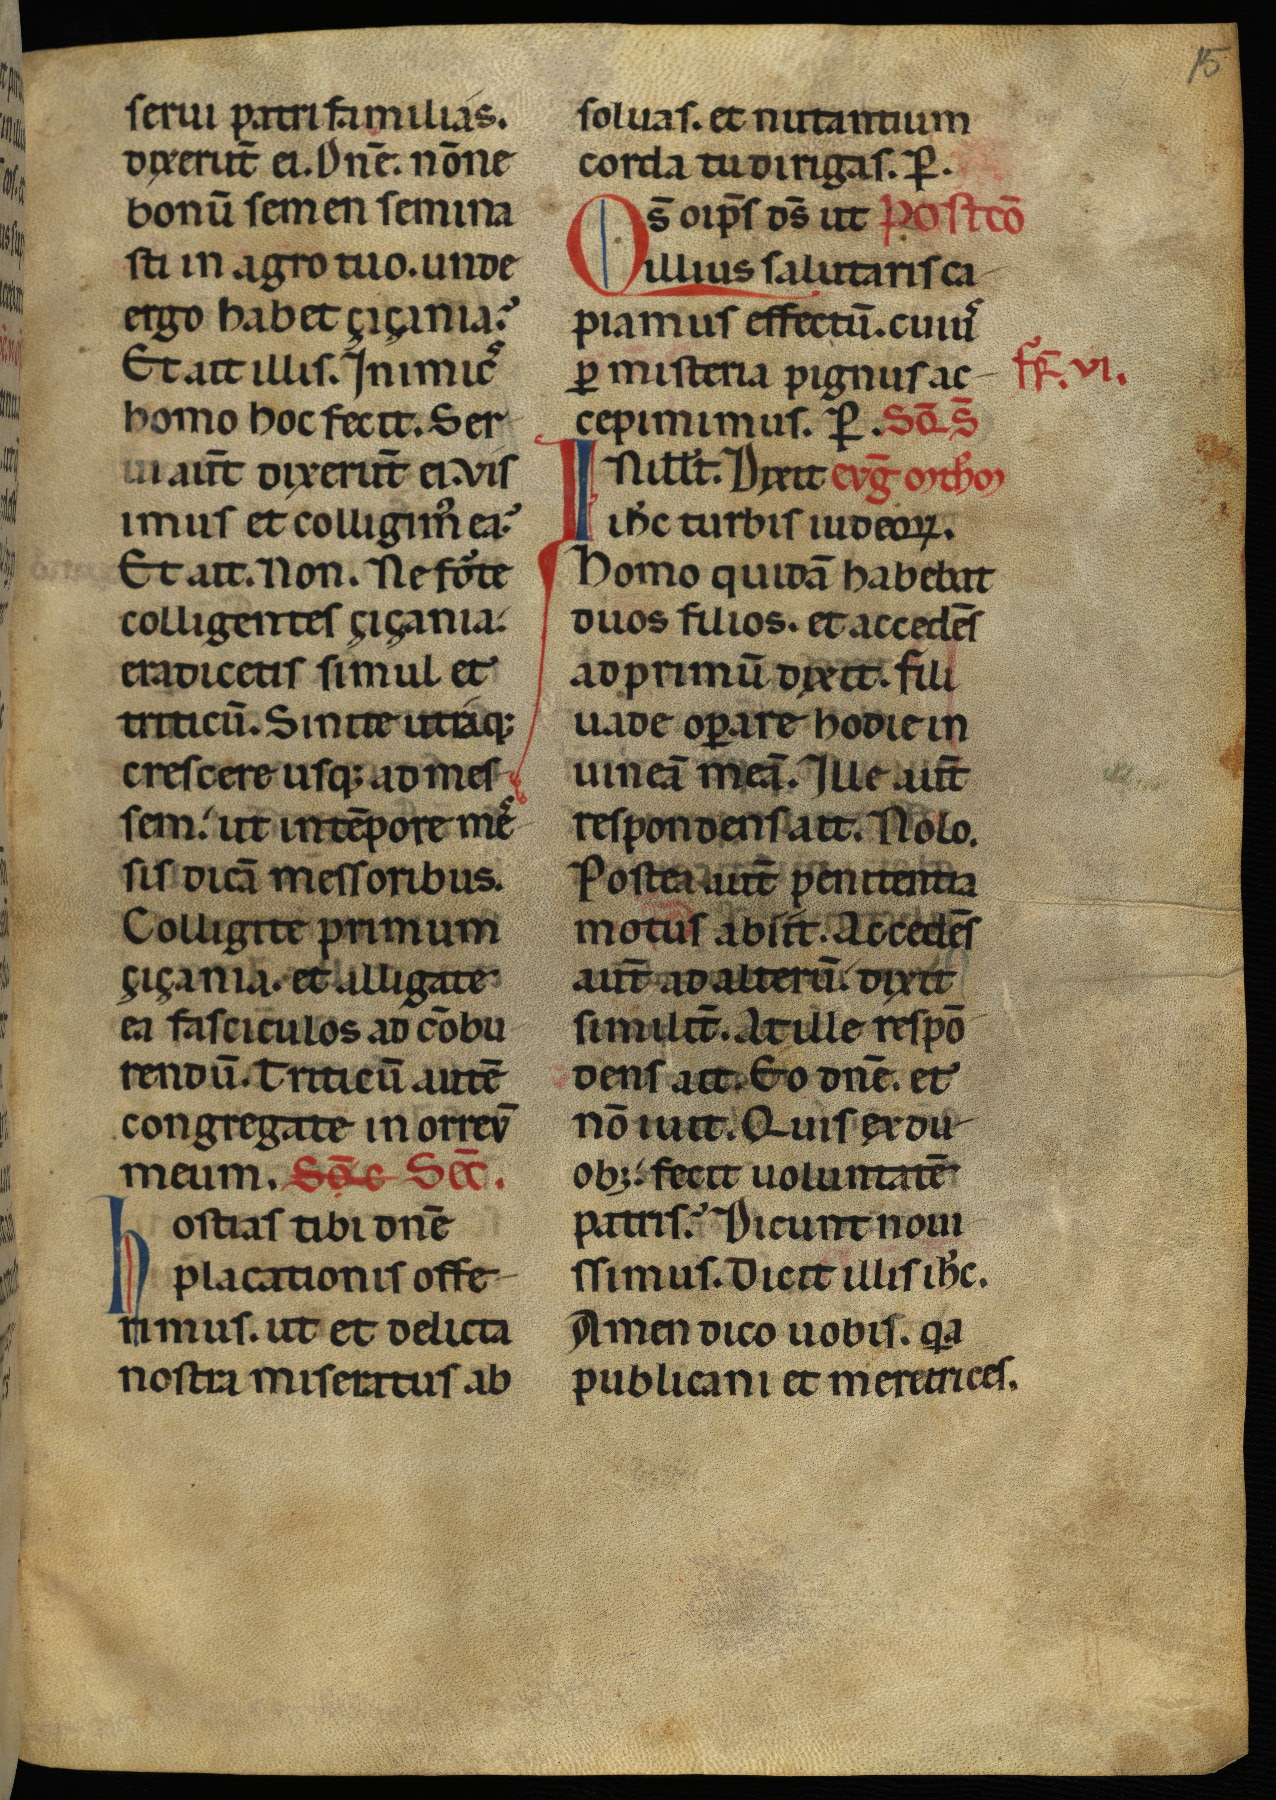 15
serui patrifamilias.
dixerut̄ ei. Dn̄e. nōne
bonū semen semina
sti in agro tuo. unde
ergo habet çiçania?
Et ait illis. Inimicꝰ
homo hoc fecit. Ser
ui aut̄ dixerut̄ ei. vis
imus et colligimꝰ ea?
Et ait. Non. Ne forte
colligentes çiçania:
eradicetis simul et
triticū. Sinite utraqꝫ
crescere usqꝫ ad mes
sem. ut in tēpore mes
sis dicā messoribus.
Colligite primum
çiçania. et alligate
ea fasciculos ad cōbu
rendū. Triticū autē
congregate in orreū
meum. Sc̄ Sec̄.
hostias tibi dn̄e
placationis offe
rimus. ut et delicta
nostra miseratus ab
soluas. et nutantium
corda tu dirigas. ꝑ.
Os̄ oip̄s ds̄ ut Postcō
illius salutaris ca
piamus effectū. cuiuꝰ
ꝑ misteria pignus ac
cepimimus. ꝑ.
fr̄. vi.
In ill t̄. Dixit evḡ
ih̄c turbis iudeoꝝ.
Homo quidā habebat
duos filios. et accedēs
ad primū dixit. fili
uade oꝑare hodie in
uineā meā. Ille aut̄
respondens ait. Nolo.
Postea aut̄ penitentia
motus abiit. Accedēs
aut̄ ad alterū. dixit
similit̄. At ille respō
dens ait. Eo dn̄e. et
nō iuit. Quis ex du
obꝫ fecit uoluntatē
patris? Dicunt noui
ssimus. Dicit illis ih̄c.
Amen dico uobis. qa
publicani et meretrices.